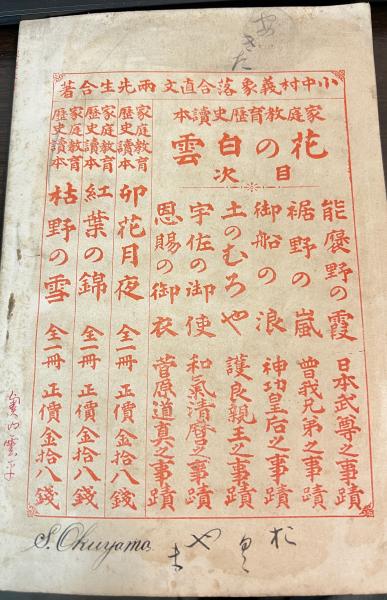 小中村義象落合直文 兩先生合著
家庭教育歷史讀本
花の白雲
目次
能褒野の霞 日本武尊之事蹟
裾野の嵐 曾我兄弟之事蹟
御船の浪 神功皇后之事蹟
土のむろや 護良親王之事蹟
宇佐の御使 和氣清麿之事蹟
恩賜の御衣 菅原道真之事蹟
家庭教育歷史讀本 卯花月夜 全一冊 正價金拾八錢
家庭教育歷史讀本 紅葉の錦 全一冊 正價金拾八錢
家庭教育歷史讀本 枯野の雪 全一冊 正價金拾八錢
S. Okuyama